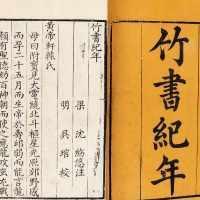 竹書紀年
竹書紀年
梁 沈約附注
明 吳琯校
黃帝軒轅氏
母曰附寶見大電繞北斗樞星光照郊野感
而孕二十五月而生帝於壽邱弱而能言龍
顏有聖德劾百神朝而使之應龍攻蚩尤戰